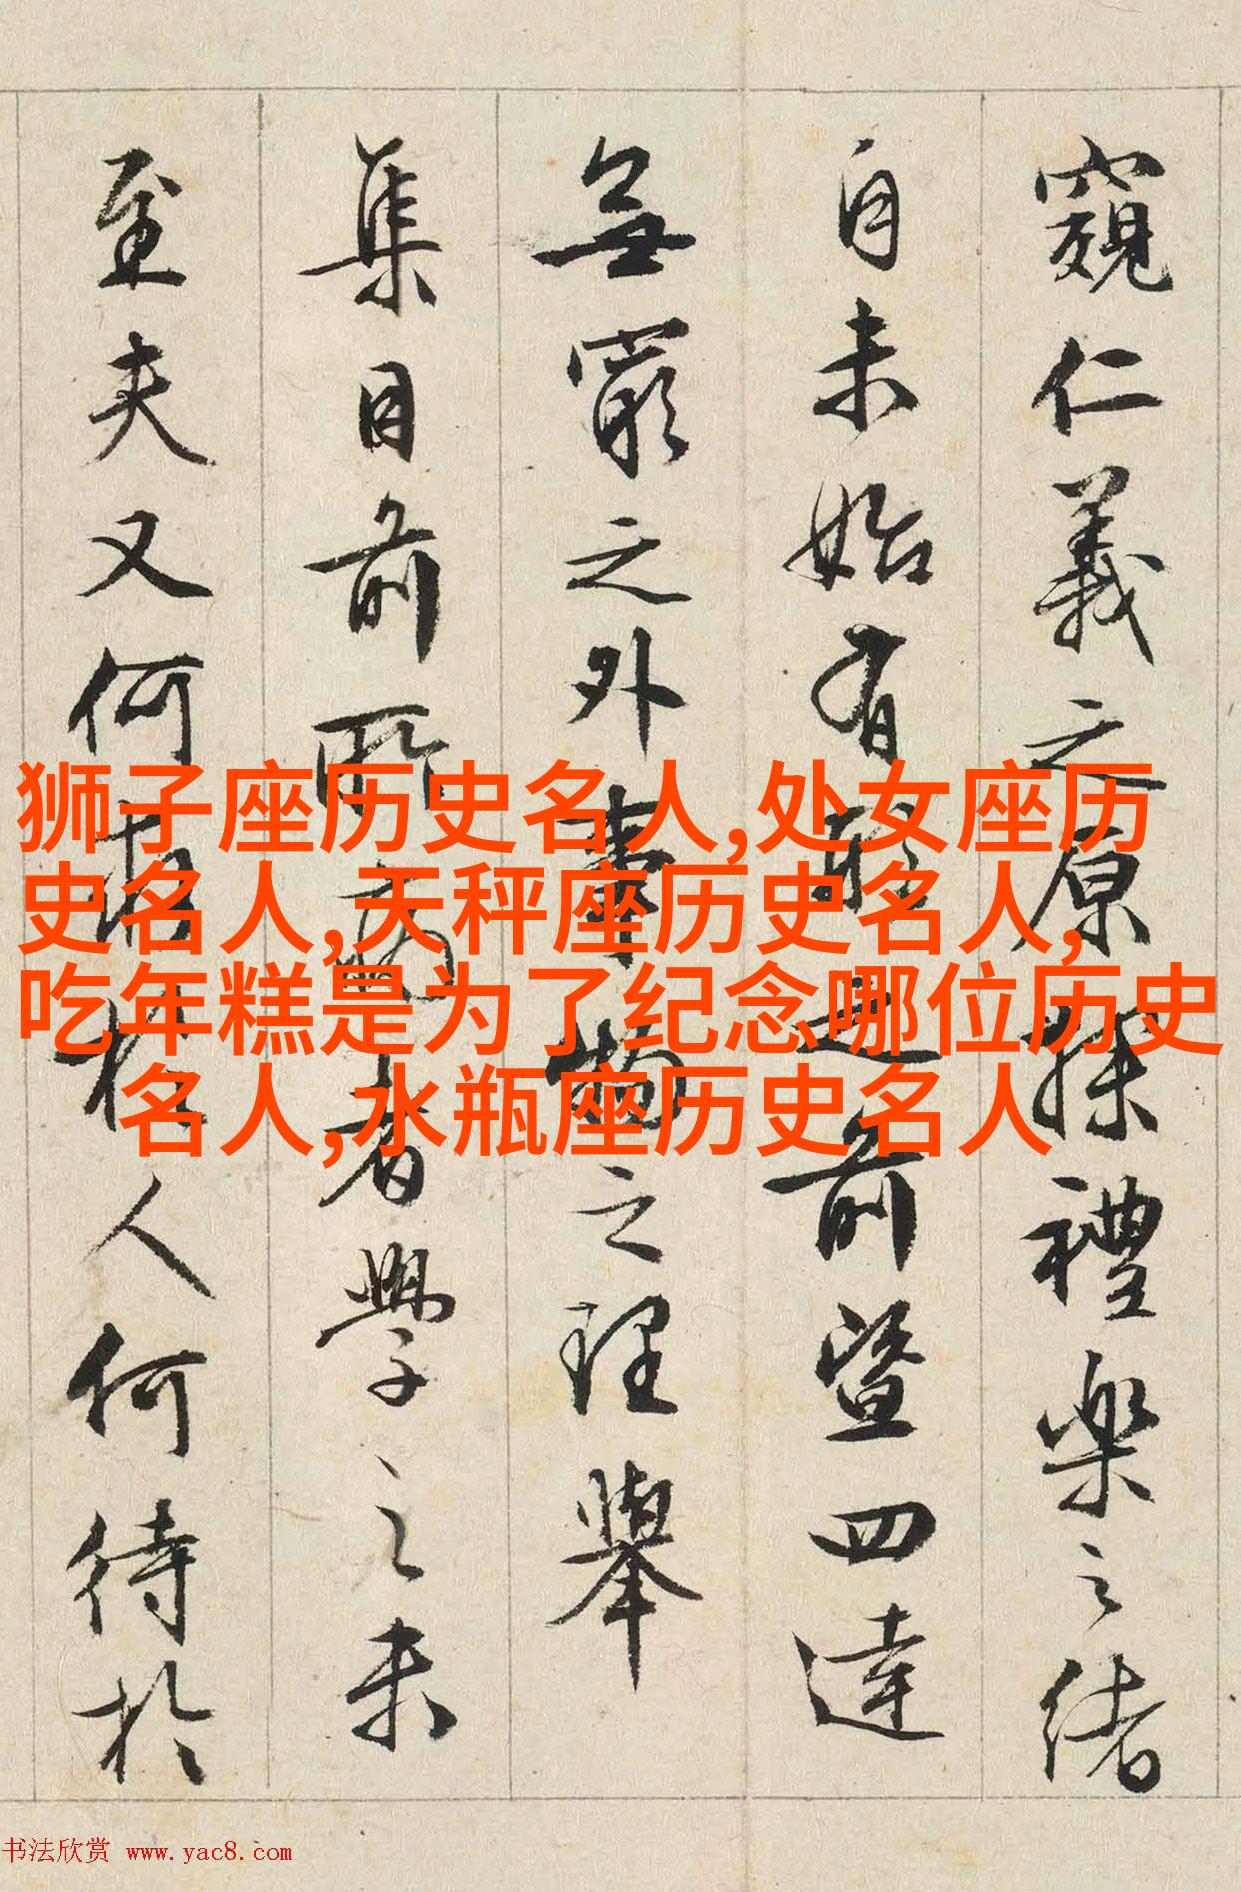 窺仁義之原探禮樂之緒
自未始有前暨四達
無窮之外事物之理舉
集目前所者學之未
至夫又何有於人何待於
狮子座历史名人,处女座历
史名人,天秤座历史名人,
吃年糕是为了纪念哪位历史
名人,水瓶座历史名人
书法欣赏 www.yac8.com